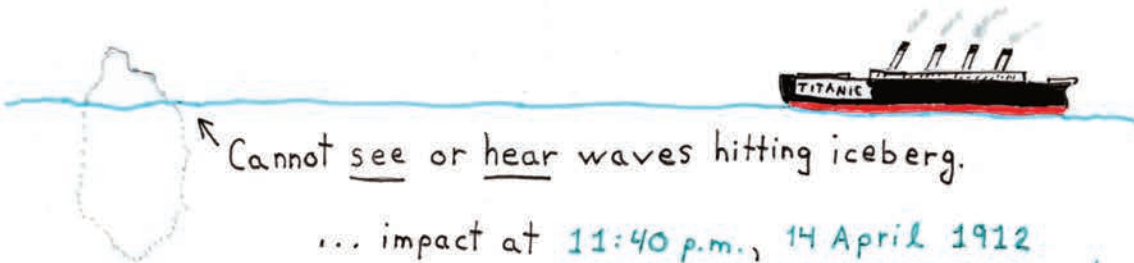 TITANIC
Cannot see or hear waves hitting iceberg.
... impact at 11:40 p.m., 14 April 1912